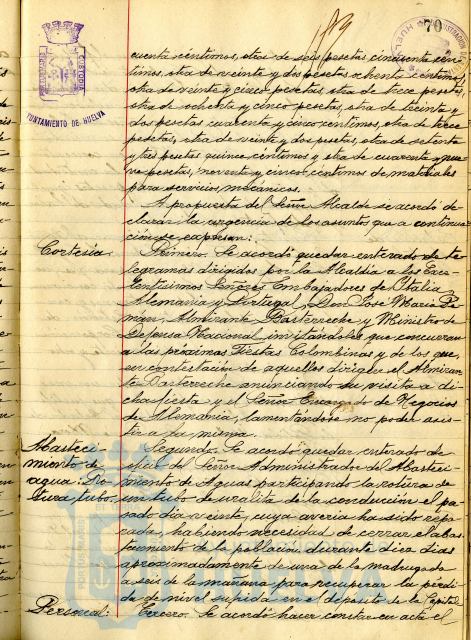 70
AYUNTAMIENTO DE HUELVA
cuenta céntimos, otra de seis pesetas cincuenta cén-
timos, otra de veinte y dos pesetas ochenta céntimos,
otra de veinte y cinco pesetas, otra de trece pesetas,
otra de ochenta y cinco pesetas, otra de treinta y
dos pesetas cuarenta y cinco céntimos, otra de trece
pesetas, otra de veinte y dos pesetas, otra de setenta
y tres pesetas quince céntimos y otra de cuarenta y nue-
ve pesetas, noventa y cinco céntimos de materiales
para servicios mecánicos.
A propuesta del Señor Alcalde se acordó de-
clarar la urgencia de los asuntos que a continua-
ción se expresan:
Cortesía. Primero. Se acordó quedar enterado de te-
legramas dirigidos por la Alcaldía a los Exce-
lentísimos Señores Embajadores de Italia,
Alemania y Portugal, Don José María Pe-
mán, Almirante Basterreche y Ministro de
Defensa Nacional invitándoles que concurran
a las próximas Fiestas Colombinas y de los que,
en contestación de aquellos dirigen el Almiran-
te Basterreche anunciando su visita a di-
cha fiesta y el Señor Encargado de Negocios
de Alemania, lamentándose no poder asis-
tir a la misma.
Abasteci- Segundo. Se acordó quedar enterado de
miento de oficio del Señor Administrador del Abasteci-
agua: Ro- miento de Aguas participando la rotura de
tura tubo. un tubo de uralita de la conducción el pa-
sado día veinte, cuya avería ha sido repa-
rada, habiendo necesidad de cerrar el abas-
tecimiento de la población durante diez días
aproximadamente de una de la madrugada
a seis de la mañana para recuperar la pérdi-
da de nivel sufrida en el depósito de la Capital.
Personal: Tercero. Se acordó hacer constar en acta el